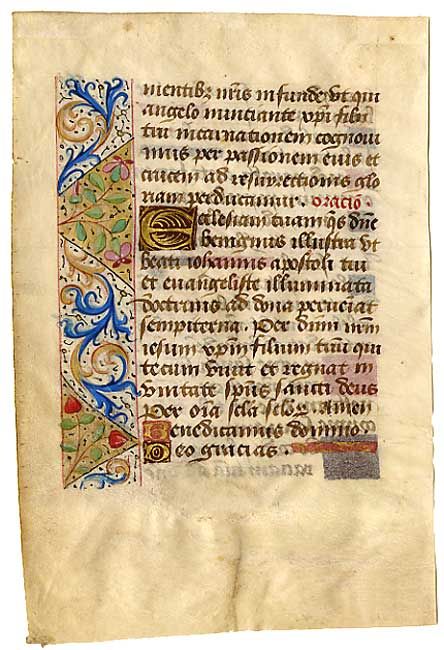 mentibz nr̃is infunde vt qui
angelo nunciante xp̃i filij
tui incarnationem cognoui
mus per passionem eius et
crucem ad resurrectionis glo
riam perducamur. oracio
Ecclesiam tuam qs̃ dñe
benignus illustra vt
beati iohannis apostoli tui
et euangeliste illuminata
doctrinis ad dona perueniat
sempiterna. Per dñm nr̃m
iesum xp̃m filium tuũ qui
tecum viuit et regnat in
vnitate spũs sancti deus
Per oĩa scl̃a scl̃oꝝ. Amen
Benedicamus domino.
Deo gracias.